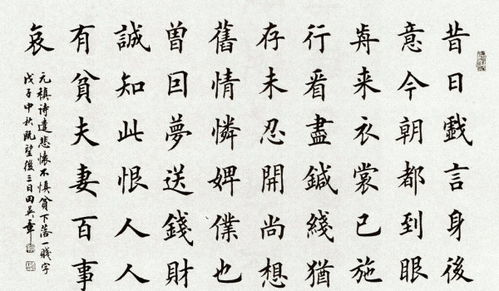 昔日戲言身後
意今朝都到眼
歬来衣裳已施
行看盡鍼綫猶
存未忍開尚想
舊情憐婢僕也
曾囙夢送錢財
誠知此恨人人
有貧夫妻百事
哀
元稹诗遣悲懷不慎貧下落一賤字
戊子中秋既望後三日田英章